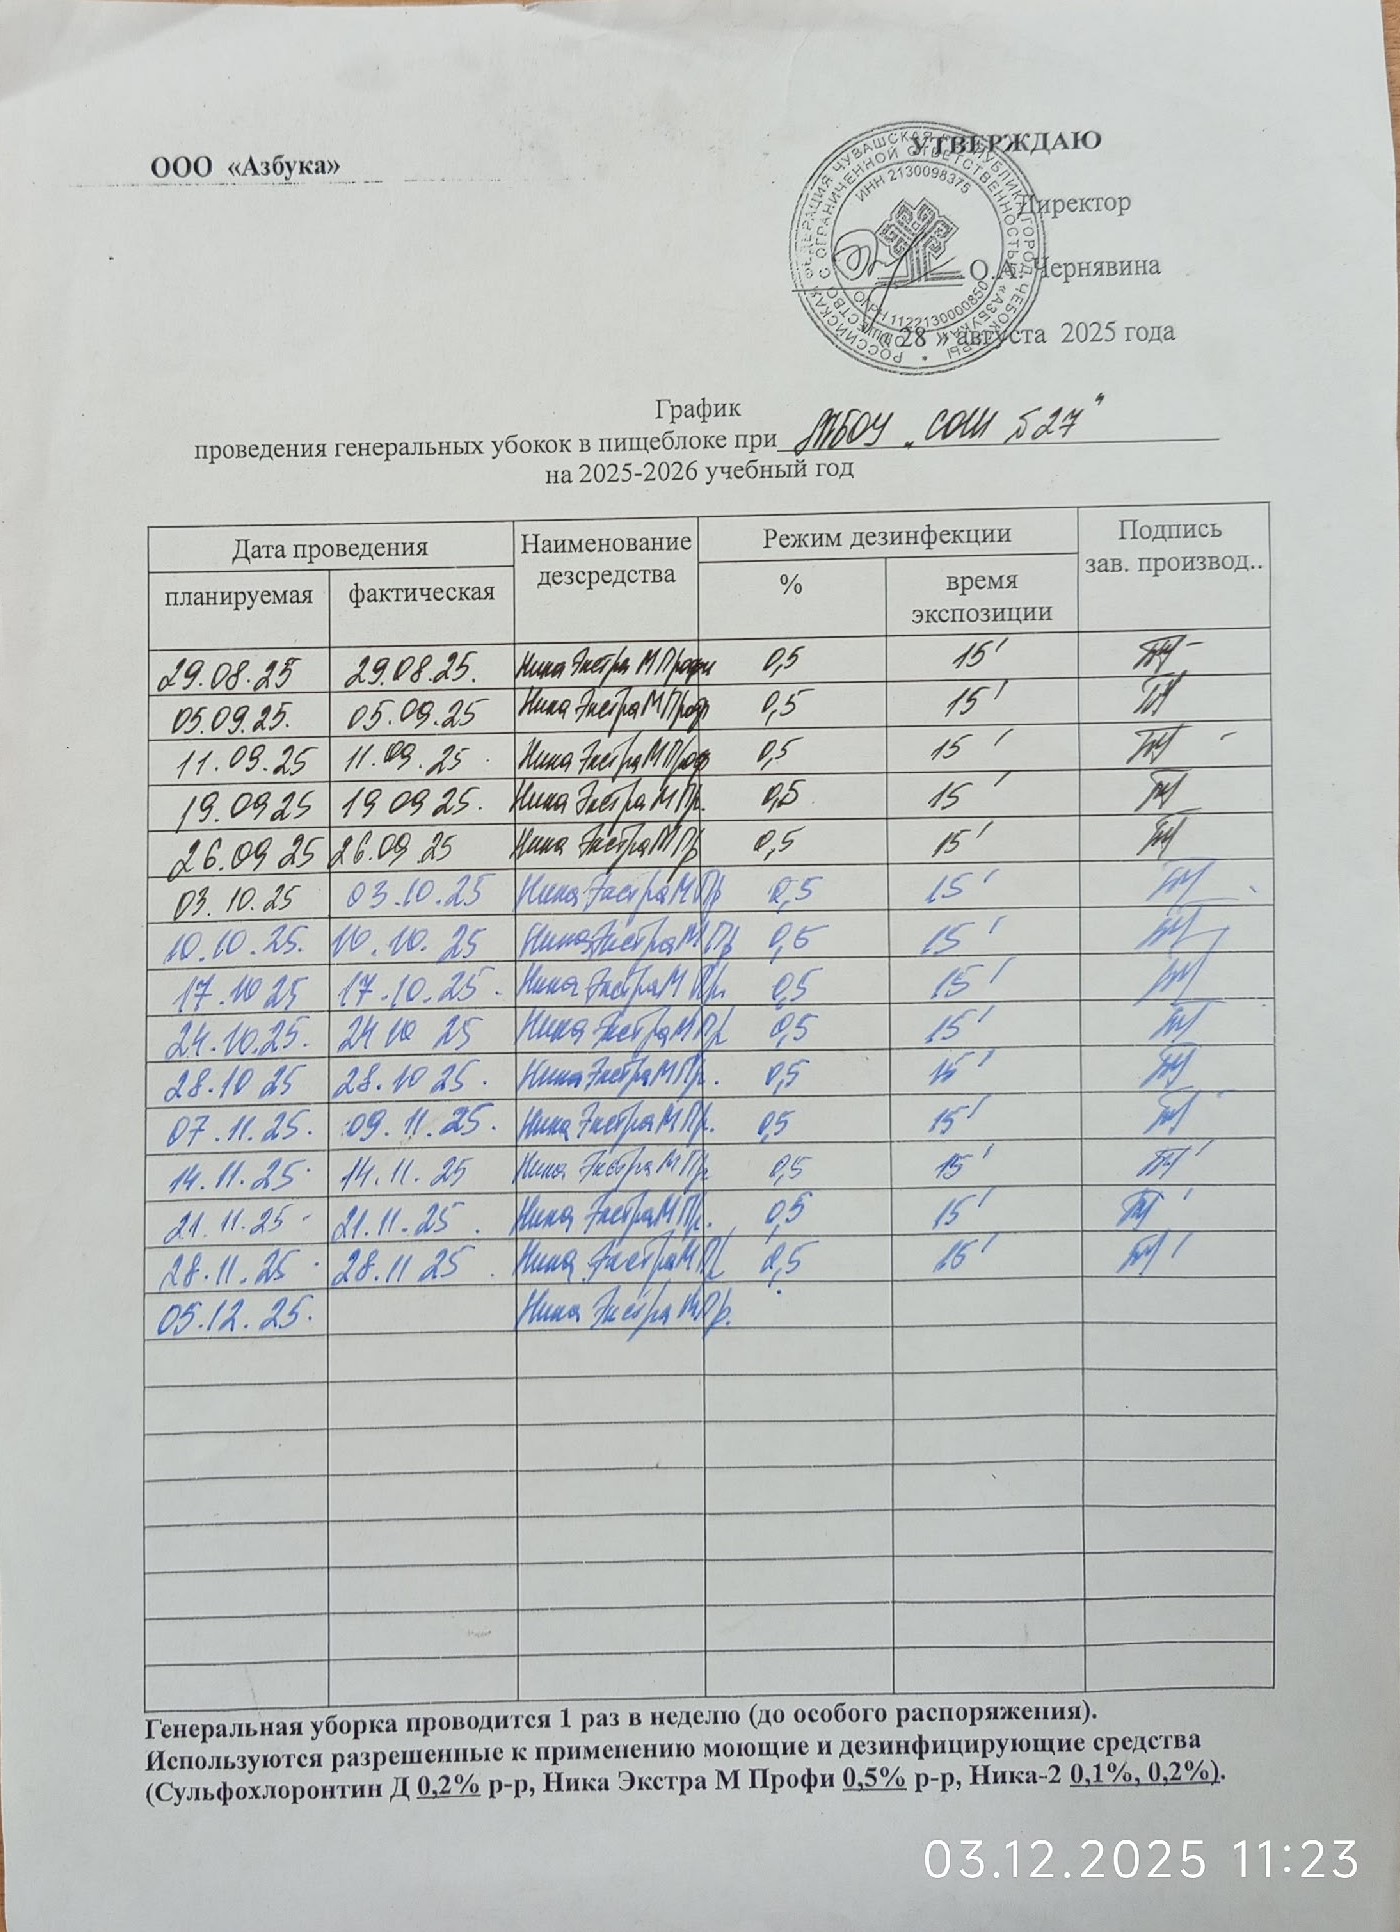 ООО «Азбука»
УТВЕРЖДАЮ
Директор
О.А. Чернявина
« 28 » августа 2025 года
РОССИЙСКАЯ ФЕДЕРАЦИЯ ЧУВАШСКАЯ РЕСПУБЛИКА ГОРОД ЧЕБОКСАРЫ
ОБЩЕСТВО С ОГРАНИЧЕННОЙ ОТВЕТСТВЕННОСТЬЮ «АЗБУКА»
ИНН 2130098375
ОГРН 1122130000850
График
проведения генеральных убокок в пищеблоке при МБОУ „СОШ №27"
на 2025-2026 учебный год
Дата проведения Наименование дезсредства Режим дезинфекции Подпись зав. производ..
планируемая фактическая % время экспозиции
29.08.25 29.08.25. Ника Экстра М Профи 0,5 15'
05.09.25. 05.09.25 Ника Экстра М Проф 0,5 15'
11.09.25 11.09.25 Ника Экстра М Проф 0,5 15'
19.09 25 19 09 25. Ника Экстра М Пр. 0,5 15'
26.09 25 26.09 25 Ника Экстра М Пр 0,5 15'
03.10.25 03.10.25 Ника Экстра М Пр 0,5 15'
10.10.25. 10.10.25 Ника Экстра М Пр 0,5 15'
17.10 25 17.10.25. Ника Экстра М Пр. 0,5 15'
24.10.25. 24 10 25 Ника Экстра М Пр 0,5 15'
28.10 25 28.10 25. Ника Экстра М Пр. 0,5 15'
07.11.25. 09.11.25. Ника Экстра М Пр. 0,5 15'
14.11.25. 14.11.25 Ника Экстра М Пр 0,5 15'
21.11.25 21.11.25. Ника Экстра М Пр. 0,5 15'
28.11.25 28.11 25. Ника Экстра М Пр 0,5 15'
05.12.25. Ника Экстра М Пр.
Генеральная уборка проводится 1 раз в неделю (до особого распоряжения).
Используются разрешенные к применению моющие и дезинфицирующие средства
(Сульфохлоронтин Д 0,2% р-р, Ника Экстра М Профи 0,5% р-р, Ника-2 0,1%, 0,2%).
03.12.2025 11:23